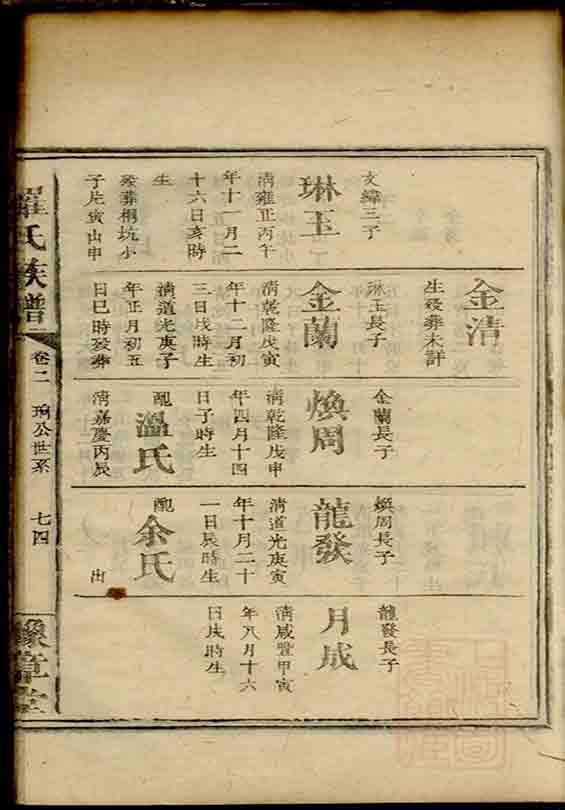 文緯三子
琳玉
清雍正丙午
年十一月二
十六日亥時
生
歿葬桐坑小
子片寅山申
金清
生歿葬未詳
琳玉長子
金蘭
清乾隆戊寅
年十二月初
三日戌時生
清道光庚子
年正月初五
日巳時歿葬
金蘭長子
煥周
清乾隆戊申
年四月十四
日子時生
配
溫氏
清嘉慶丙辰
煥周長子
龍發
清道光庚寅
年十月二十
一日辰時生
配
余氏
出
龍發長子
月成
清咸豐甲寅
年八月十六
日戌時生
羅氏族譜
卷二
公世系
七四
豫章堂